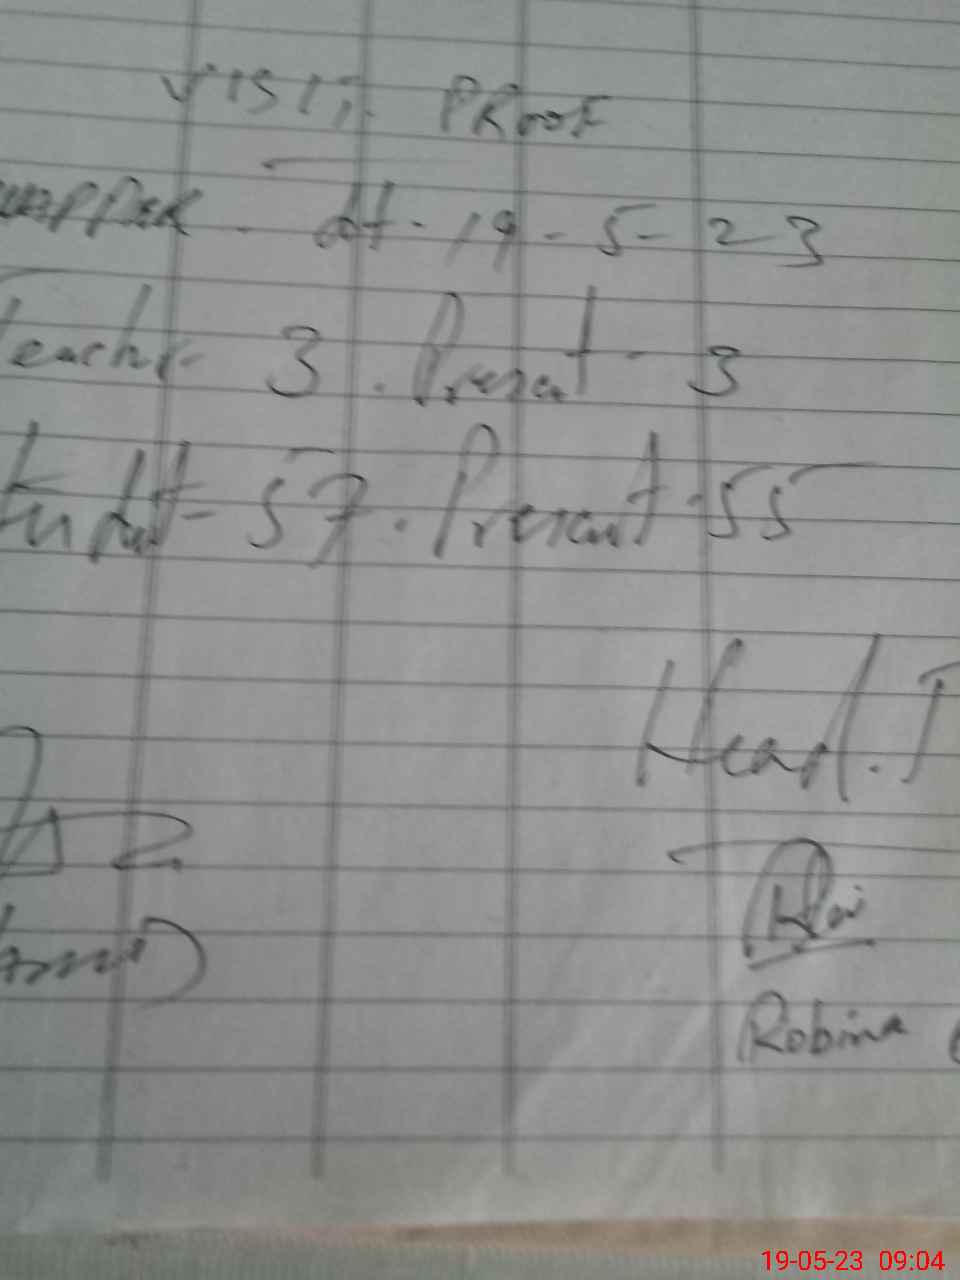 VISIT PROOF
dt. 19-5-23
Teacher- 3. Present- 3
Student- 57. Present-55
Head. T
Robina
19-05-23 09:04